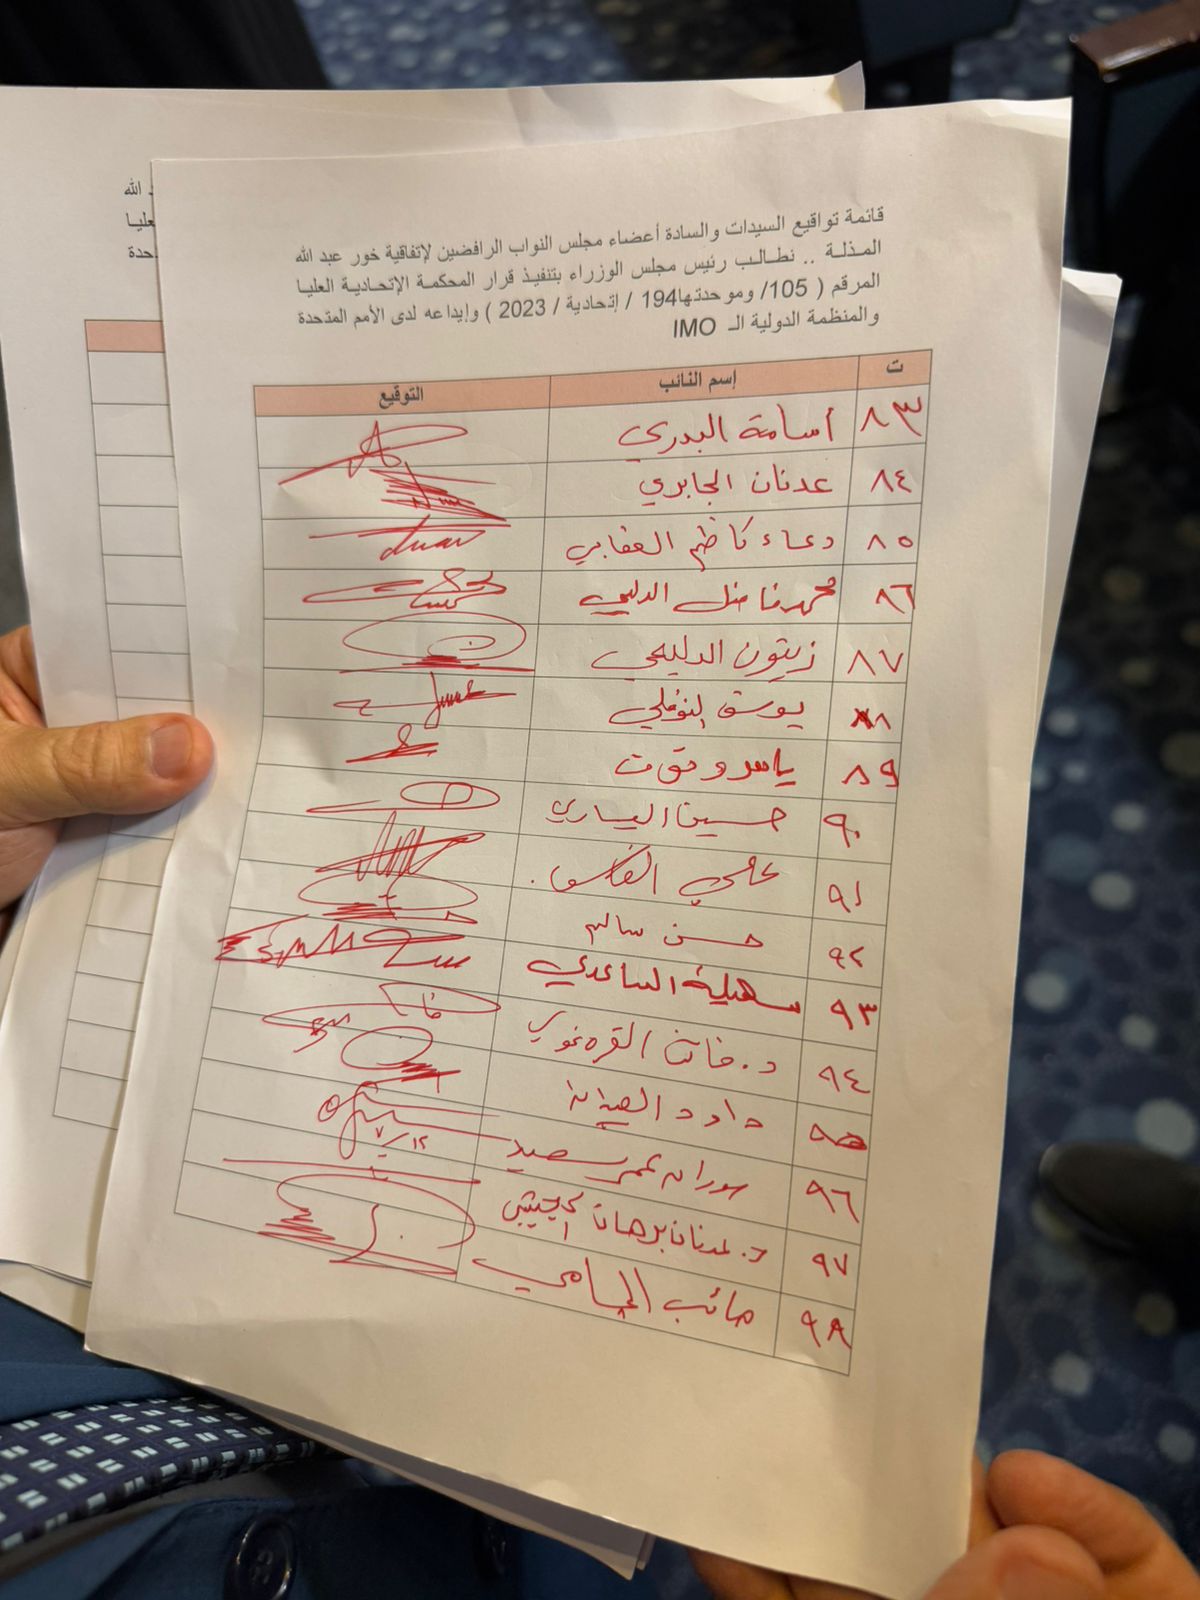 قائمة تواقيع السيدات والسادة أعضاء مجلس النواب الرافضين لإتفاقية خور عبد الله
المذلة .. نطالب رئيس مجلس الوزراء بتنفيذ قرار المحكمة الإتحادية العليا
المرقم ( 105/ وموحدتها194 / إتحادية / 2023 ) وإيداعه لدى الأمم المتحدة
والمنظمة الدولية الـ IMO
ت إسم النائب التوقيع
٨٣ أسامة البدري
٨٤ عدنان الجابري
٨٥ دعاء كاظم
٨٦ محمد فاضل الدليمي
٨٧ زيتون الدليمي
٨٨ يوسف
٨٩ ياسر وتوت
٩٠ حسين اليساري
٩١ علي
٩٢ حسن سالم
٩٣ سهيلة الساعدي
٩٤ د. فاتن القره غولي
٩٥ داود العيدان
٩٦ سوران عمر سعيد
٧/١٢
٩٧ د. عدنان برهان الجحيشي
٩٨ صائب
الله
عليا
حدة